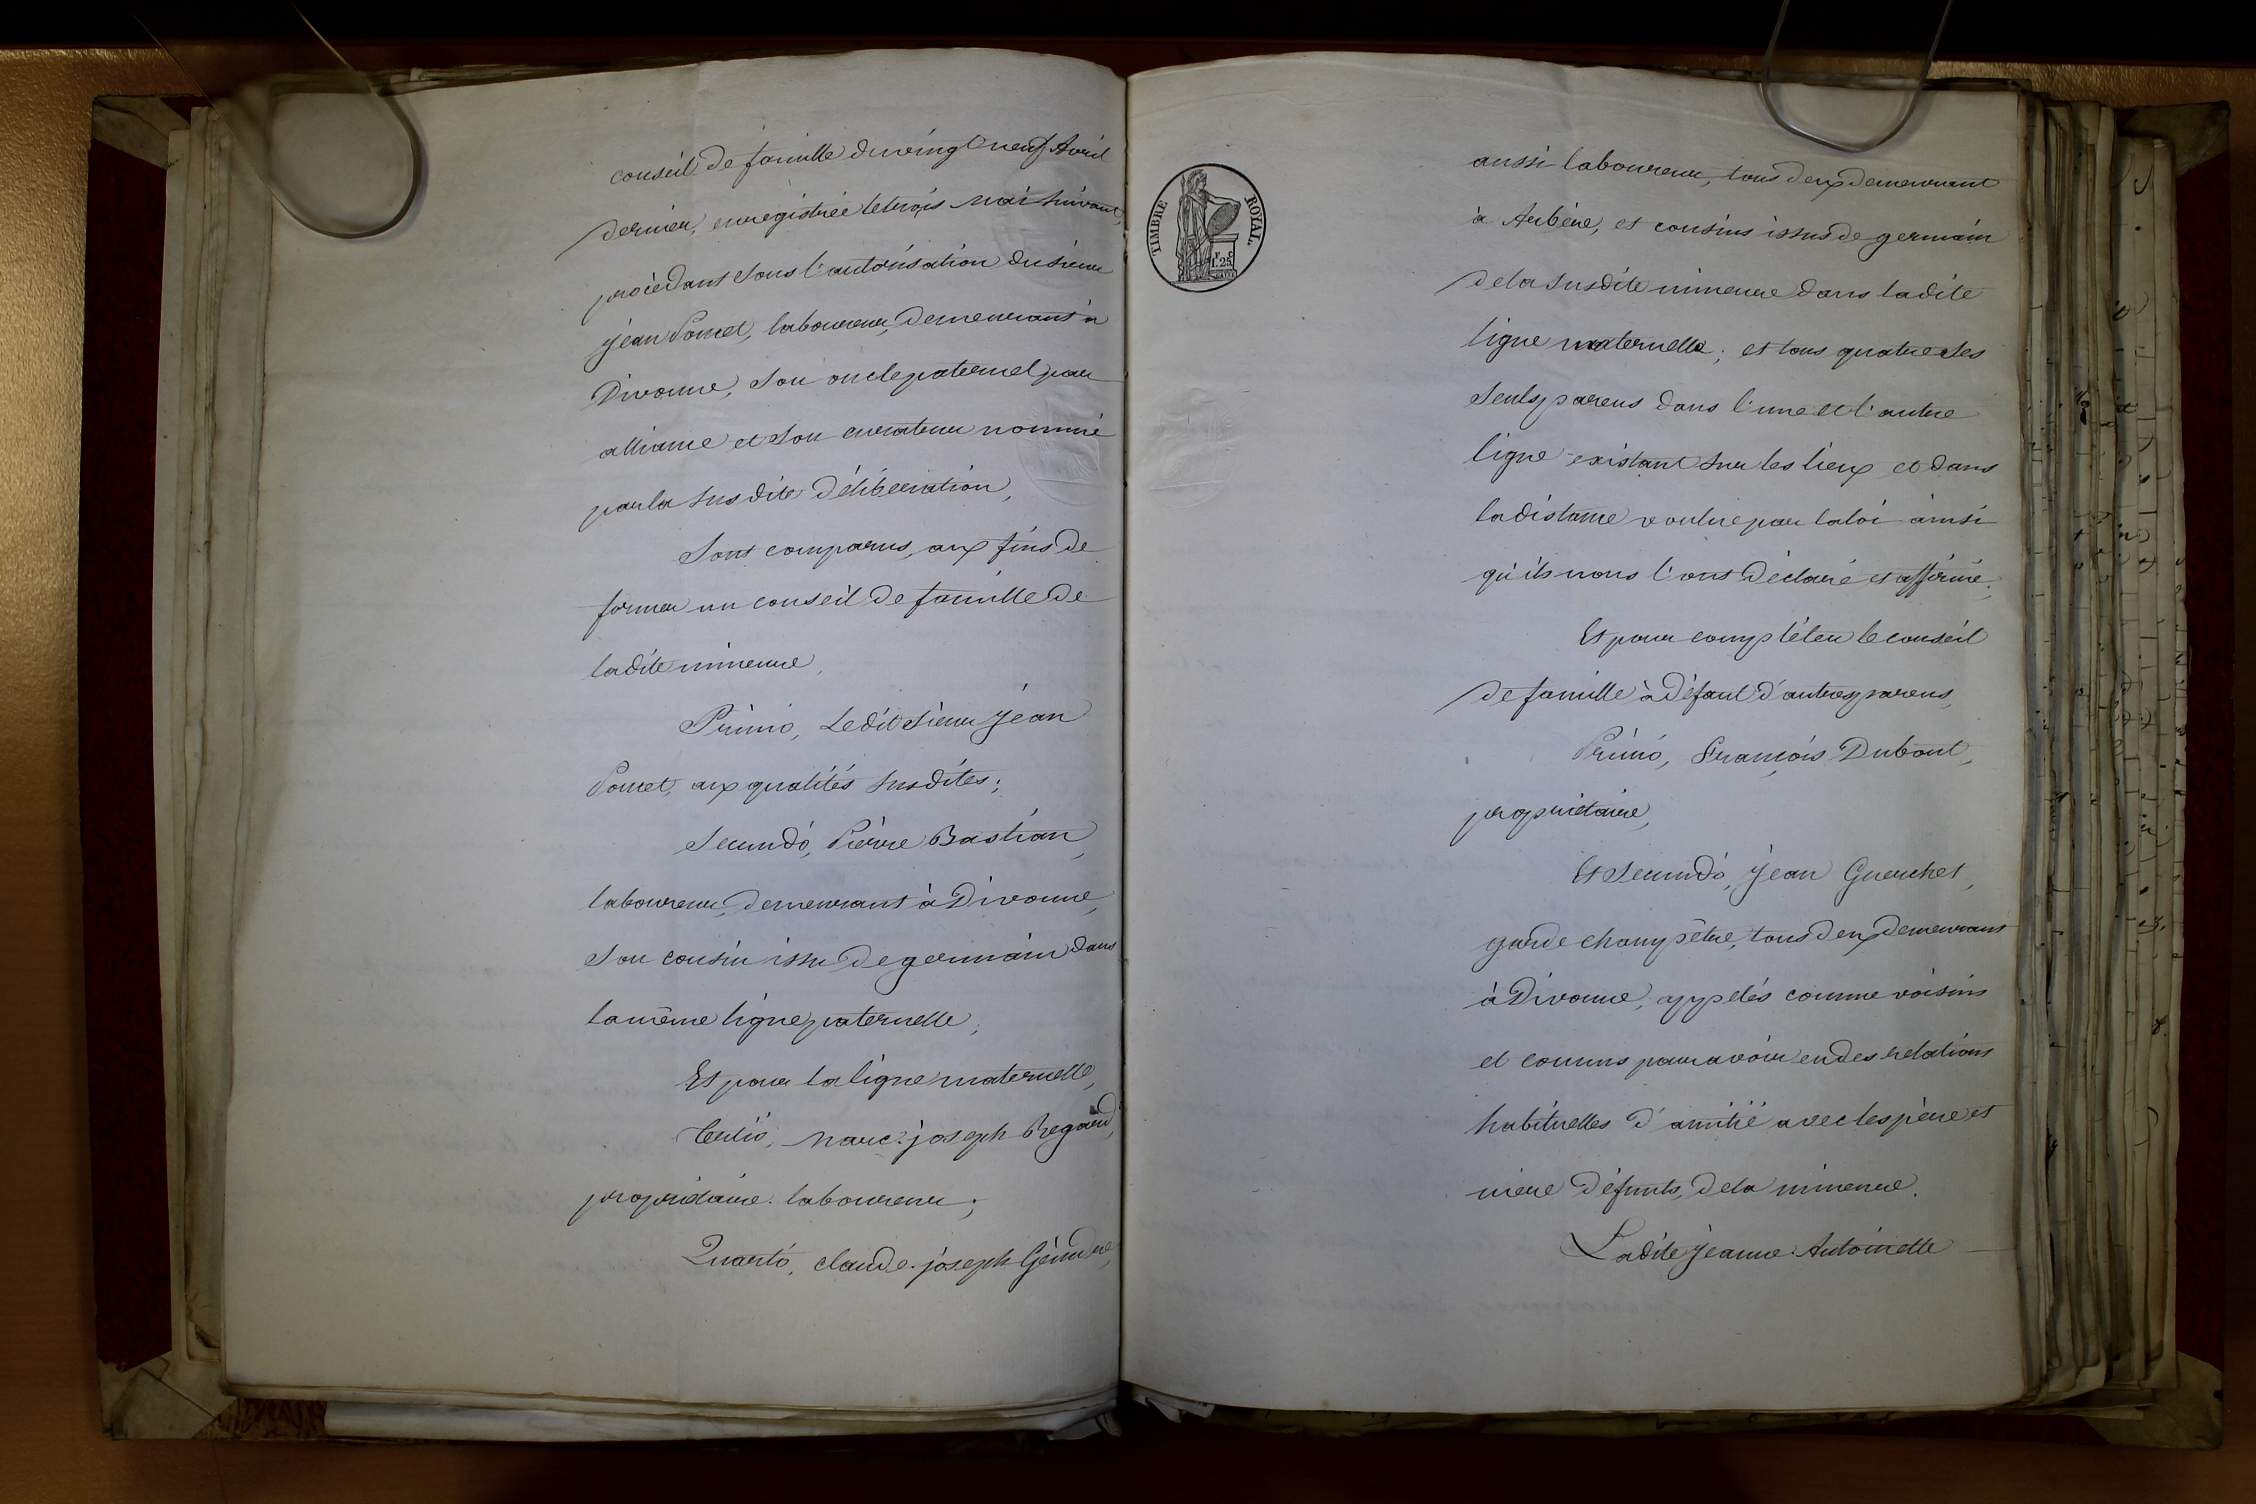 conseil de famille du vingt neuf Avril
dernier, enregistrée le trois mai suivant,
procédant sous l'autorisation du sieur
jean Poncet, laboureur, demeurant à
Divonne, son oncle paternel par
alliance et son curateur nommé
par la susdite délibération,
Sont comparus, aux fins de
former un conseil de famille de
ladite mineure,
Primò, Ledit sieur jean
Poncet, aux qualités susdites;
Secundò, Pierre Bastian,
laboureur, demeurant à Divonne,
son cousin issu de germain dans
la même ligne paternelle;
Et pour la ligne maternelle,
Tertiò, marc-joseph Regard,
propriétaire-laboureur;
Quartò, claude-joseph
TIMBRE ROYAL
1F. 25C
aussi laboureur, tous deux demeurant
à Arbère, et cousins issus de germain
de la susdite mineure dans ladite
ligne maternelle; et tous quatre ses
seuls parens dans l'une et l'autre
ligne existant sur les lieux et dans
la distance voulue par la loi ainsi
qu'ils nous l'ont déclaré et affirmé;
Et pour compléter le conseil
de famille à défaut d'autres parens,
Primò, François Dubout,
propriétaire,
Et Secundò, jean Guerchet,
garde champêtre, tous deux demeurant
à Divonne, appelés comme voisins
et connus pour avoir eu des relations
habituelles d'amitié avec les père et
mère défunts, de la mineure.
Ladite jeanne-Antoinette